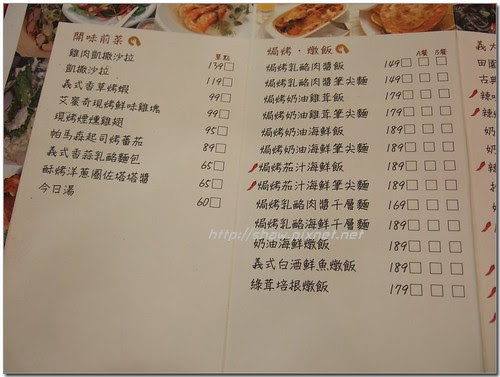 開味前菜
單點
雞肉凱撒沙拉 139□
凱撒沙拉 119□
義式香草烤蝦 99□
艾塞奇現烤鮮味雞塊 99□
現烤煙燻雞翅 95□
帕馬森起司烤蕃茄 89□
義式香蒜乳酪麵包 65□
酥烤洋蔥圈佐塔塔醬 65□
今日湯 60□
焗烤·燉飯
A餐 B餐
焗烤乳酪肉醬飯 149□ □ □
焗烤乳酪肉醬筆尖麵 149□ □ □
焗烤奶油雞茸飯 179□ □ □
焗烤奶油雞茸筆尖麵 179□ □ □
焗烤奶油海鮮飯 189□ □ □
焗烤奶油海鮮筆尖麵 189□ □ □
焗烤茄汁海鮮飯 189□ □ □
焗烤茄汁海鮮筆尖麵 189□ □ □
焗烤乳酪肉醬千層麵 169□ □ □
焗烤乳酪海鮮千層麵 189□ □ □
奶油海鮮燉飯 189□ □ □
義式白酒鮮魚燉飯 189□ □ □
綠茸培根燉飯 179□ □ □
義大
田園
古典
辣
辣
奶
奶
http://shaw.pixnet.net